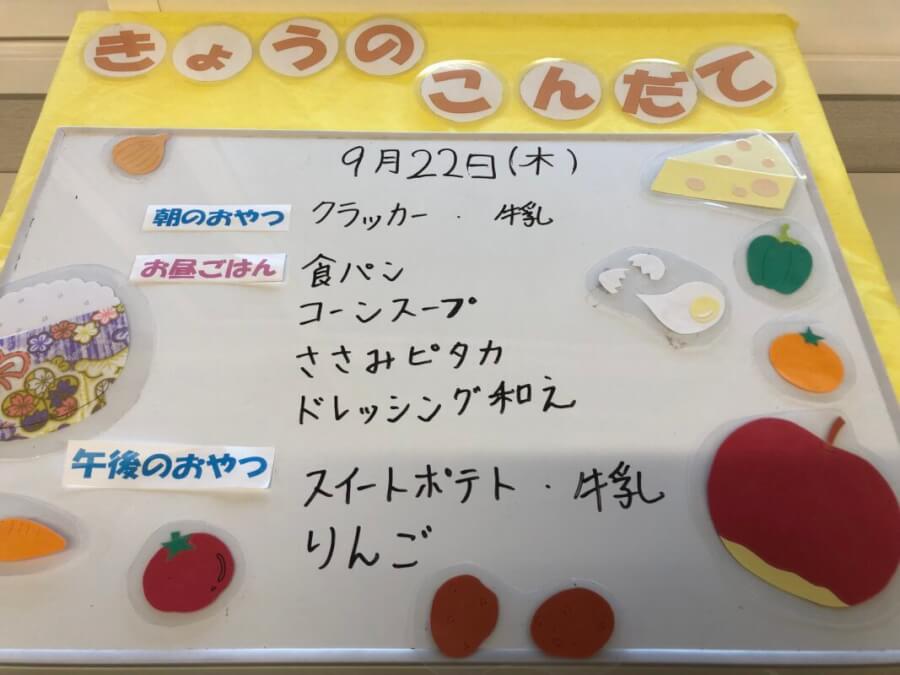 きょうの
こんだて
9月22日(木)
朝のおやつ クラッカー ・ 牛乳
お昼ごはん 食パン
コーンスープ
ささみピタカ
ドレッシング和え
午後のおやつ スイートポテト ・ 牛乳
りんご